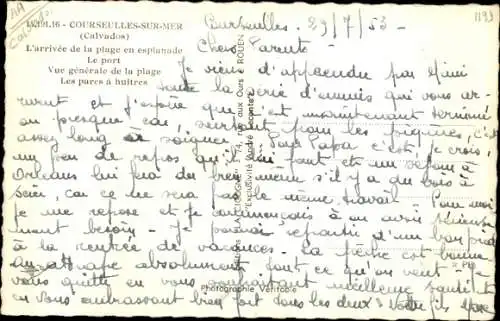 14.191.16 - COURSEULLES-SUR-MER
(Calvados)
L'arrivée de la plage en esplanade
Le port
Vue générale de la plage
Les parcs à huîtres
Courseulles - 29/7/53 -
Chers Parents
Je viens d'apprendre par Mimi
toute la série d'ennuis qui vous ar-
rivent et j'espère que c'est maintenant terminé
ou presque car, surtout pour les piqûres, c'est
assez long à soigner. Pour Papa c'est, je crois,
un peu de repos qu'il lui faut et un séjour à
Orléans lui fera du bien même s'il y a du bois à
scier, car ce ne sera pas le même travail - Pour moi
je me repose et je commençais à en avoir sérieuse-
ment besoin - Je pourrai repartir d'un bon pied
à la rentrée de vacances - La pêche est bonne
on attrape absolument tout ce qu'on veut - Je
vous quitte en vous souhaitant meilleure santé et
en vous embrassant bien fort tous les deux - Votre fils
Photographie Véritable